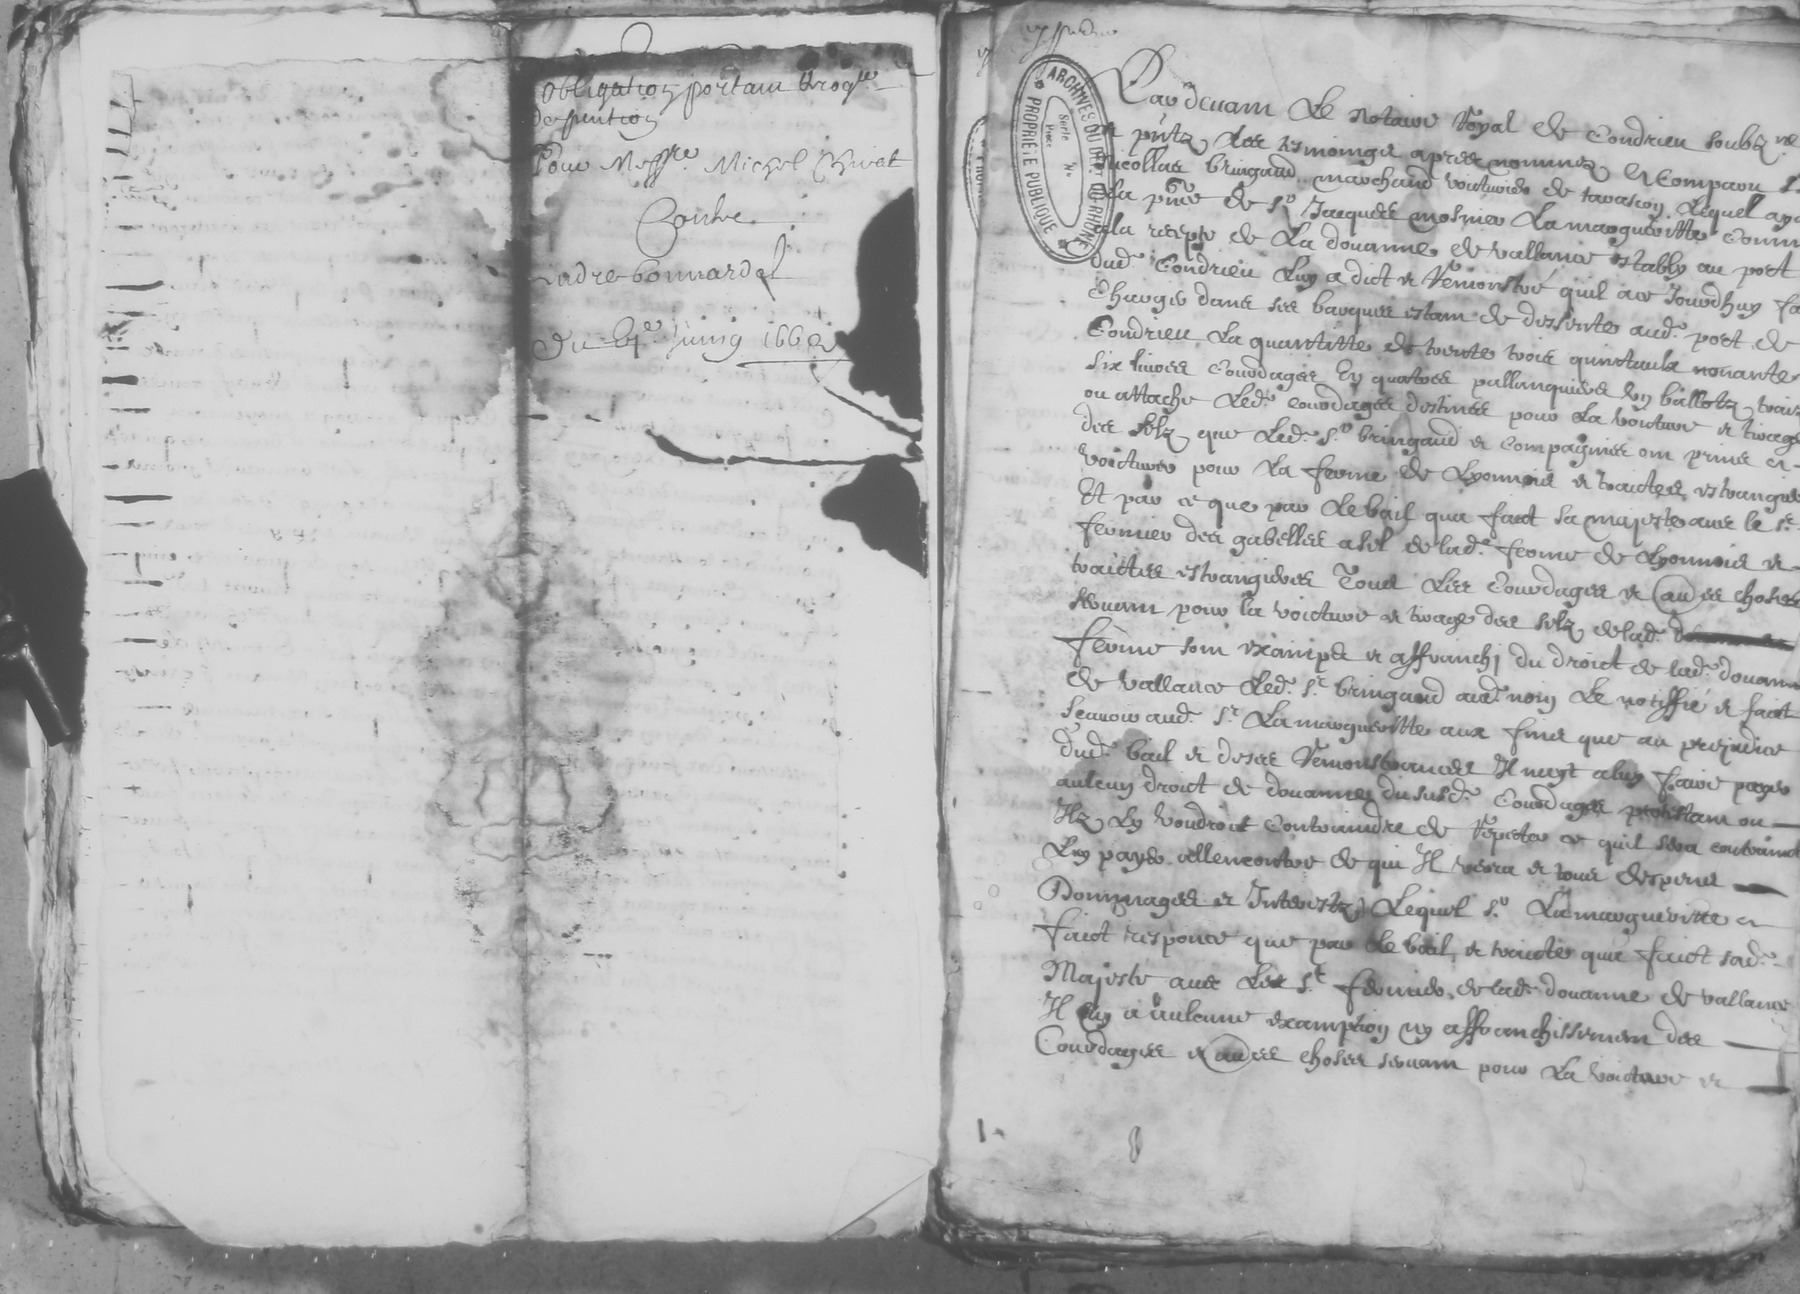 Obligation portant prog.e
de pention
Pour Mess.re Michel Chivet
Contre
Andre bonnardel
Du 6.e juing 1662
ARCHIVES DU DÉP.T DU RHÔNE
PROPRIÉTÉ PUBLIQUE
Pardevant Le Notaire Royal de Condrieu soubz.ne
et p̄ntz des tesmoingz apres nommez Est Comparu S.r
Nicollas bringaud marchand voiturier de tarascon Lequel aya
en La p̄nce de S.r Jacques mosnier Lamargueritte Comm
a la recepte de La douanne de vallance estably au port
dud. Condrieu Luy a dict et Remonstré quil ace Jourdhuy fa
Charger dans ses barques estant de dessente aud. port de
Condrieu La quantitte de trente trois quintaulx nonante
six livres Courdages En quatres pallanquieres En ballotz trais
ou attache Lesd. courdages destines pour La voiture et tirage
des selz que Led. S.r bringaud et compagnies ont prins et
voiturer pour La ferme de Lyonnois et traictes estrangie
Et par ce que par Le bail qua faict sa majeste avec le S.r
fermier des gabelles a sel de lad. ferme de Lyonnois et
traittes estrangieres Tous Les Courdages et au.es choses
servant pour la voiture et tirage des selz de lad.
ferme sont exampts et affranchj du droict de lad. douanne
de vallance Led. S.r bringaud aud. nom Le nottiffié et faict
scavoir aud. S.r Lamargueritte aux fins que au prejudice
dud. bail et de ses Remonstrances Il nayt a luy faire payer
aulcun droict de douanne du susd. Courdages protestant ou
Ilz Ly voudroit contraindre de Repeter ce quil sera contrainct
Luy payer allencontre de qui Il verra et tous despens
Dommages et Interestz Lequel S.r Lamargueritte a
faict responce que par Le bail et traicte que faict sad.
Majeste avec Les S.r fermier de lad. douanne de vallance
Il ny a aulcune examption ny affranchissement des
Courdages et au.es choses servant pour La voiture et